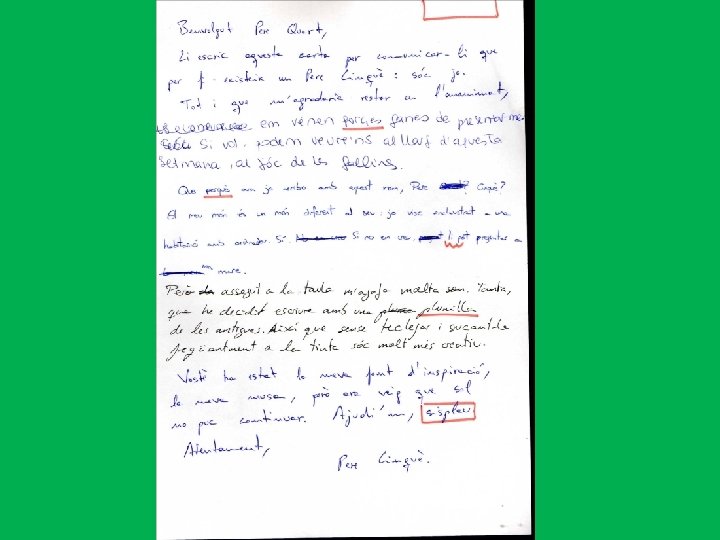 Benvolgut Pere Quart,
Li escric aquesta carta per comunicar-li que
per f existeix un Pere Cinquè: sóc jo.
Tot i que m'agradaria restar a l'anonimat,
em vénen poques ganes de presentar-me
Si vol, podem veure'ns al llarg d'aquesta
setmana, al joc de les
Que perquè jo amb aquest nom, Pere Cinquè?
El meu món és un món diferent al seu: jo visc enclustrat a una
habitació amb ordinador. Sí. Si no em veu. pot presentar a
mare.
Però assegut a la taula m'agafa molta son. Tanta,
que he decidit escriure amb una plumilla
de les antigues. Així que sense teclejar i sucant-la
a la tinta sóc molt més creatiu.
Vostè ha estat la meva font d'inspiració,
la meva musa, però ara veig que sol
no puc continuar. Ajudi'm, sisplau
Atentament,
Pere Cinquè.